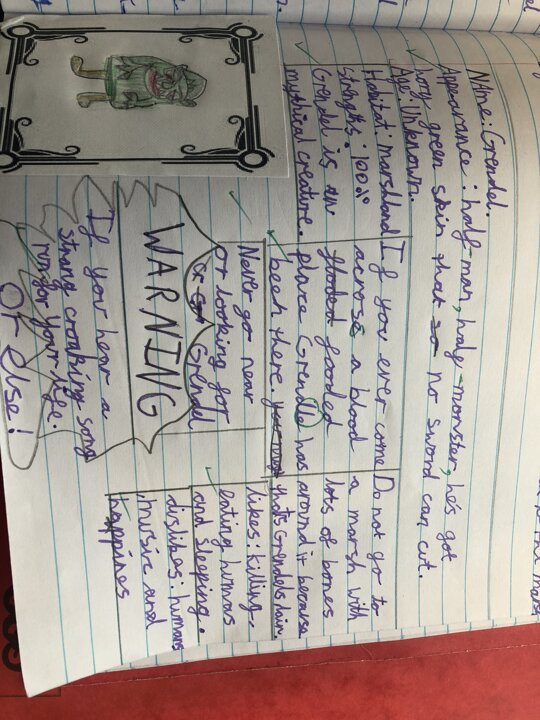 NAme: Grendel.
Appearance: half-man, half-monster, he's got
green skin that no sword can cut.
Age: Unknown.
Habitat: marshland
Strenghs: 100%
Grendel is an
mythical creature.
If you ever come
across a blood
flooded fooded
place Grendle has
been there
Do not go to
a marsh with
lots of bones
around it because
thats Grendels
Never go near
or looking for
Grendel
WARNING
If your hear a
strang croaking song
run for your life.
Or else!
likes: killing,
eating humans
and sleeping.
dislikes: humans
,music and
happines